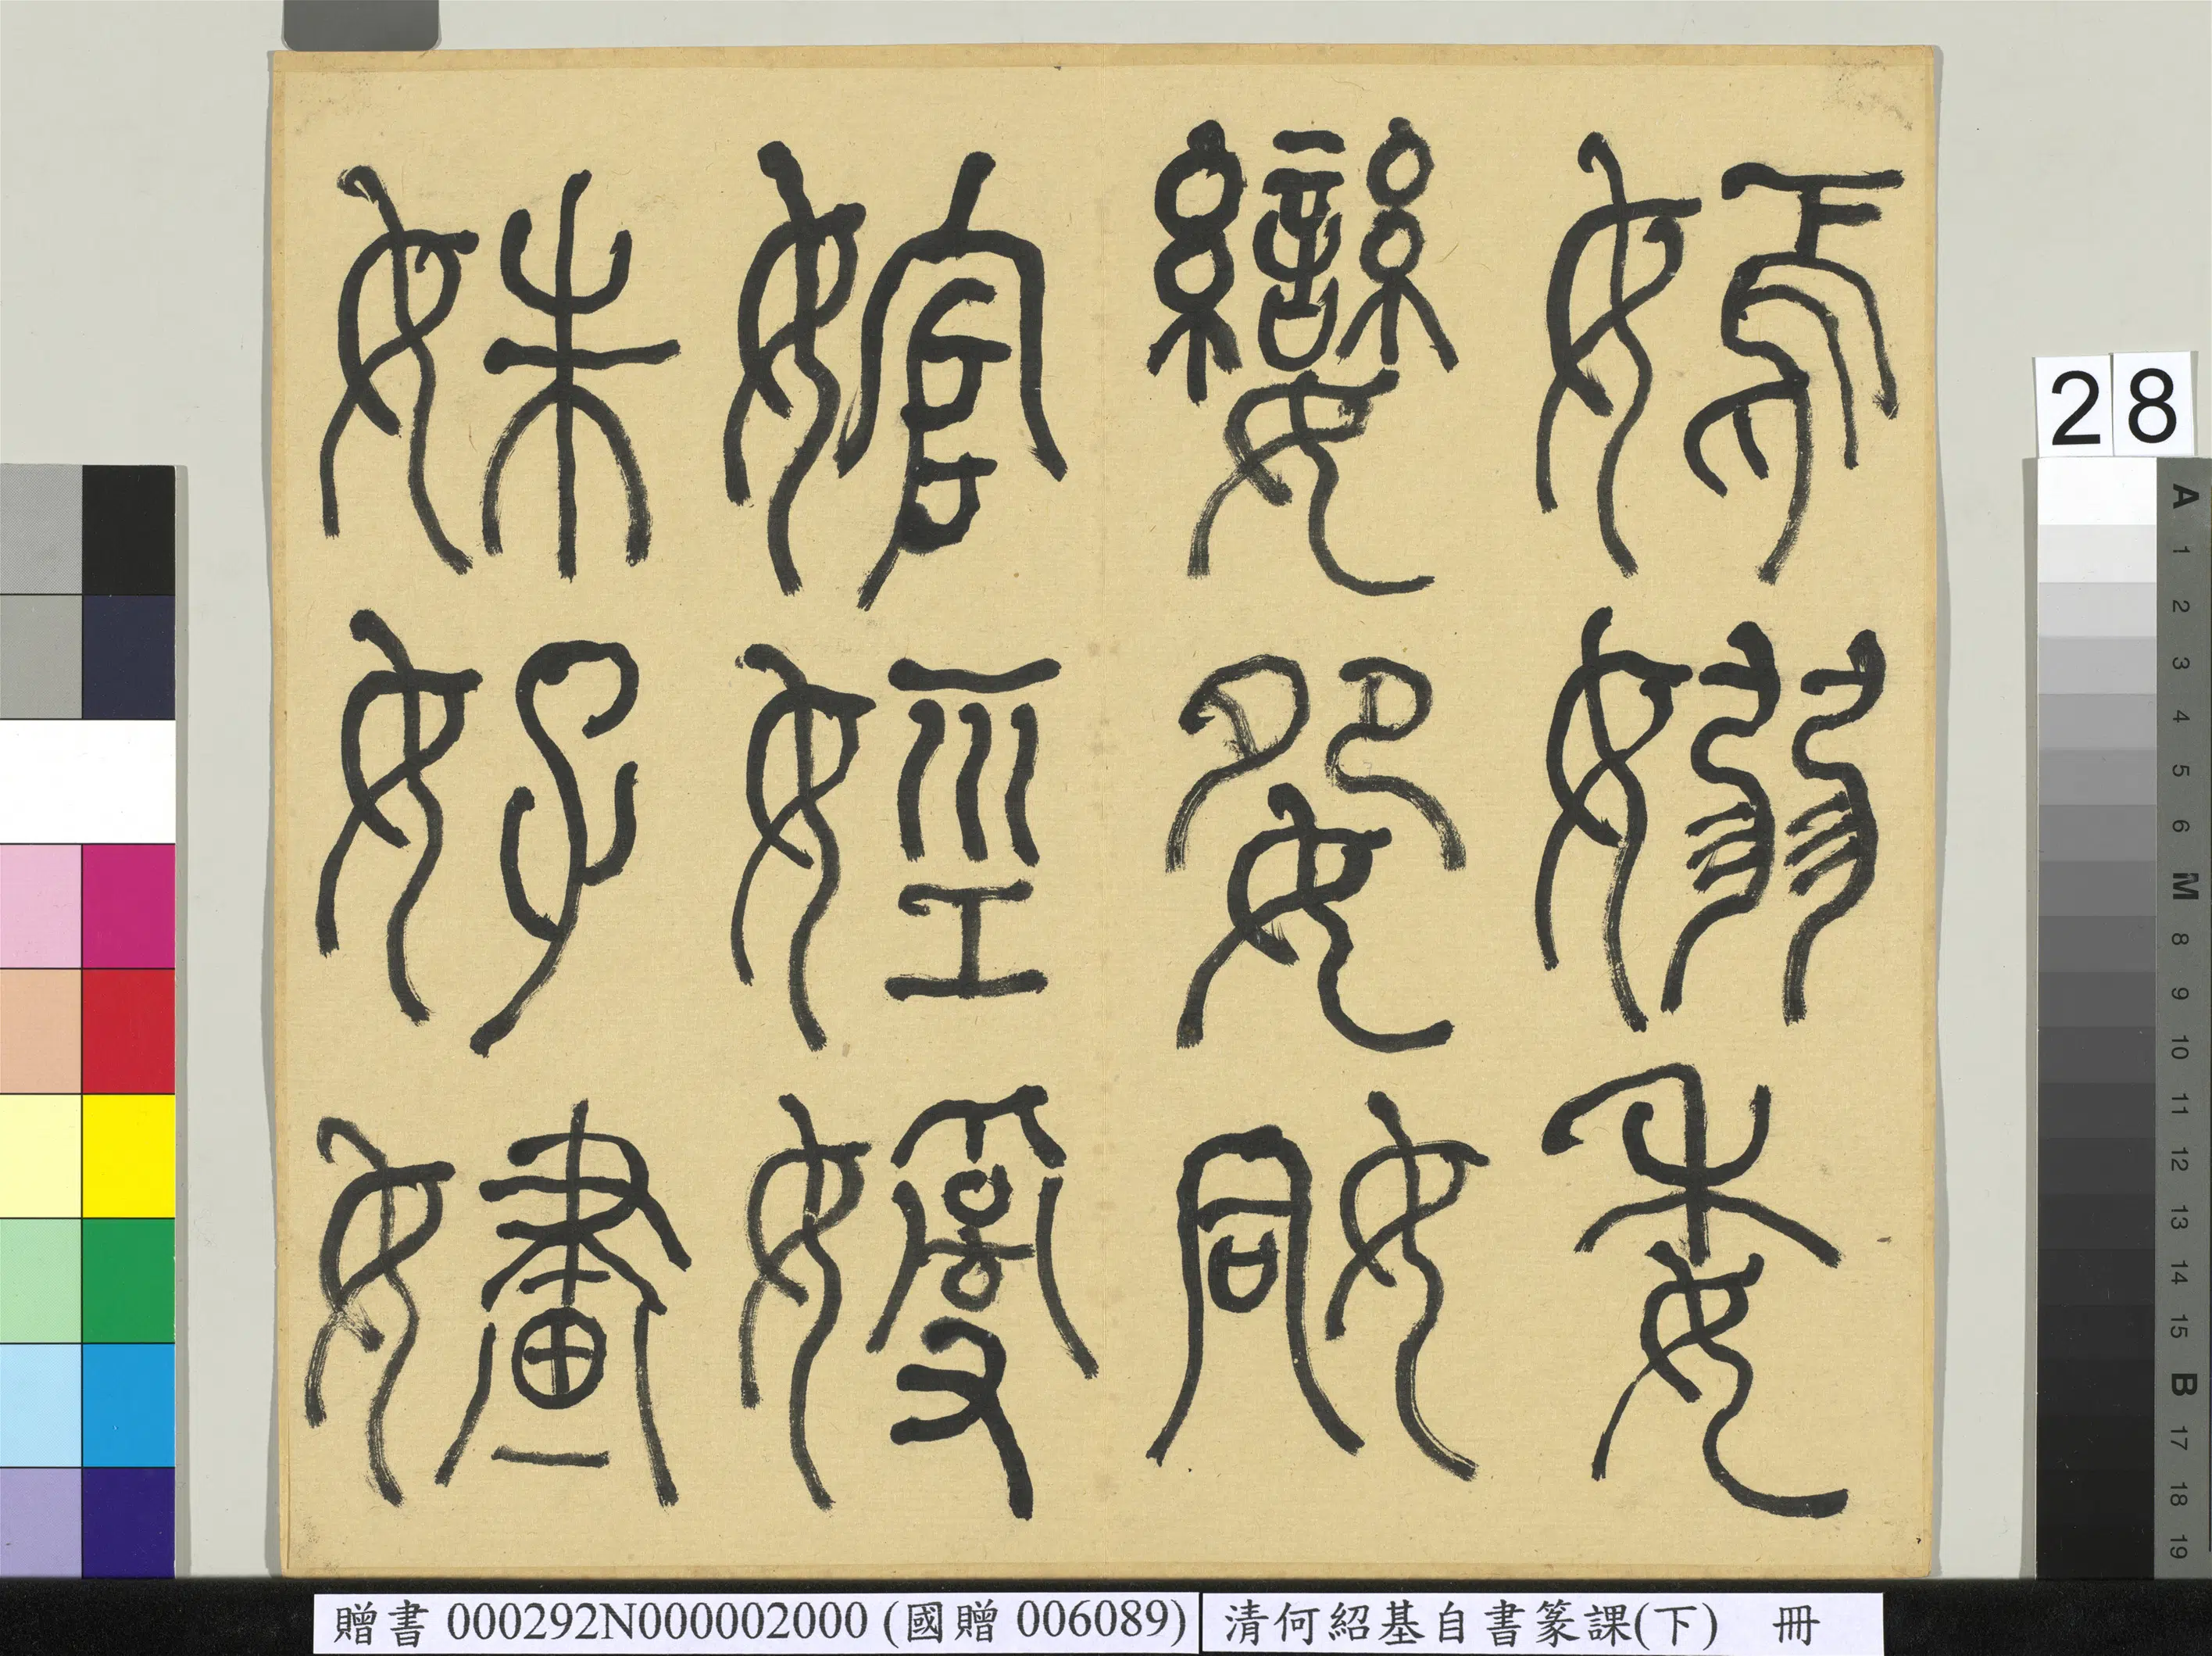 嫣嫋委
孌妴姛
婠娙
姝好嫿
28
A 1 2 3 4 5 6 M 8 9 10 11 12 13 14 15 B 17 18 19
贈書 000292N000002000 (國贈 006089)
清何紹基自書篆課(下) 冊